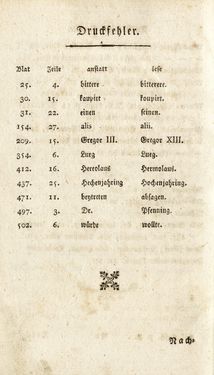 Druckfehler.
Blat Zeile anstatt lese
25. 4. bittere bitterere.
30. 15. kaupirt koupirt.
31. 22. einen seinen.
154. 27. alis aliis.
209. 15. Gregor III. Gregor XIII.
354. 6. Lurg Lurg.
412. 16. Hermolaus.
437. 25. Hechenjahring Hochenjahring.
471. 11. beytreten absagen.
497. 3. Dr. Pfenning.
502. 6. würde wollte.
Nach-